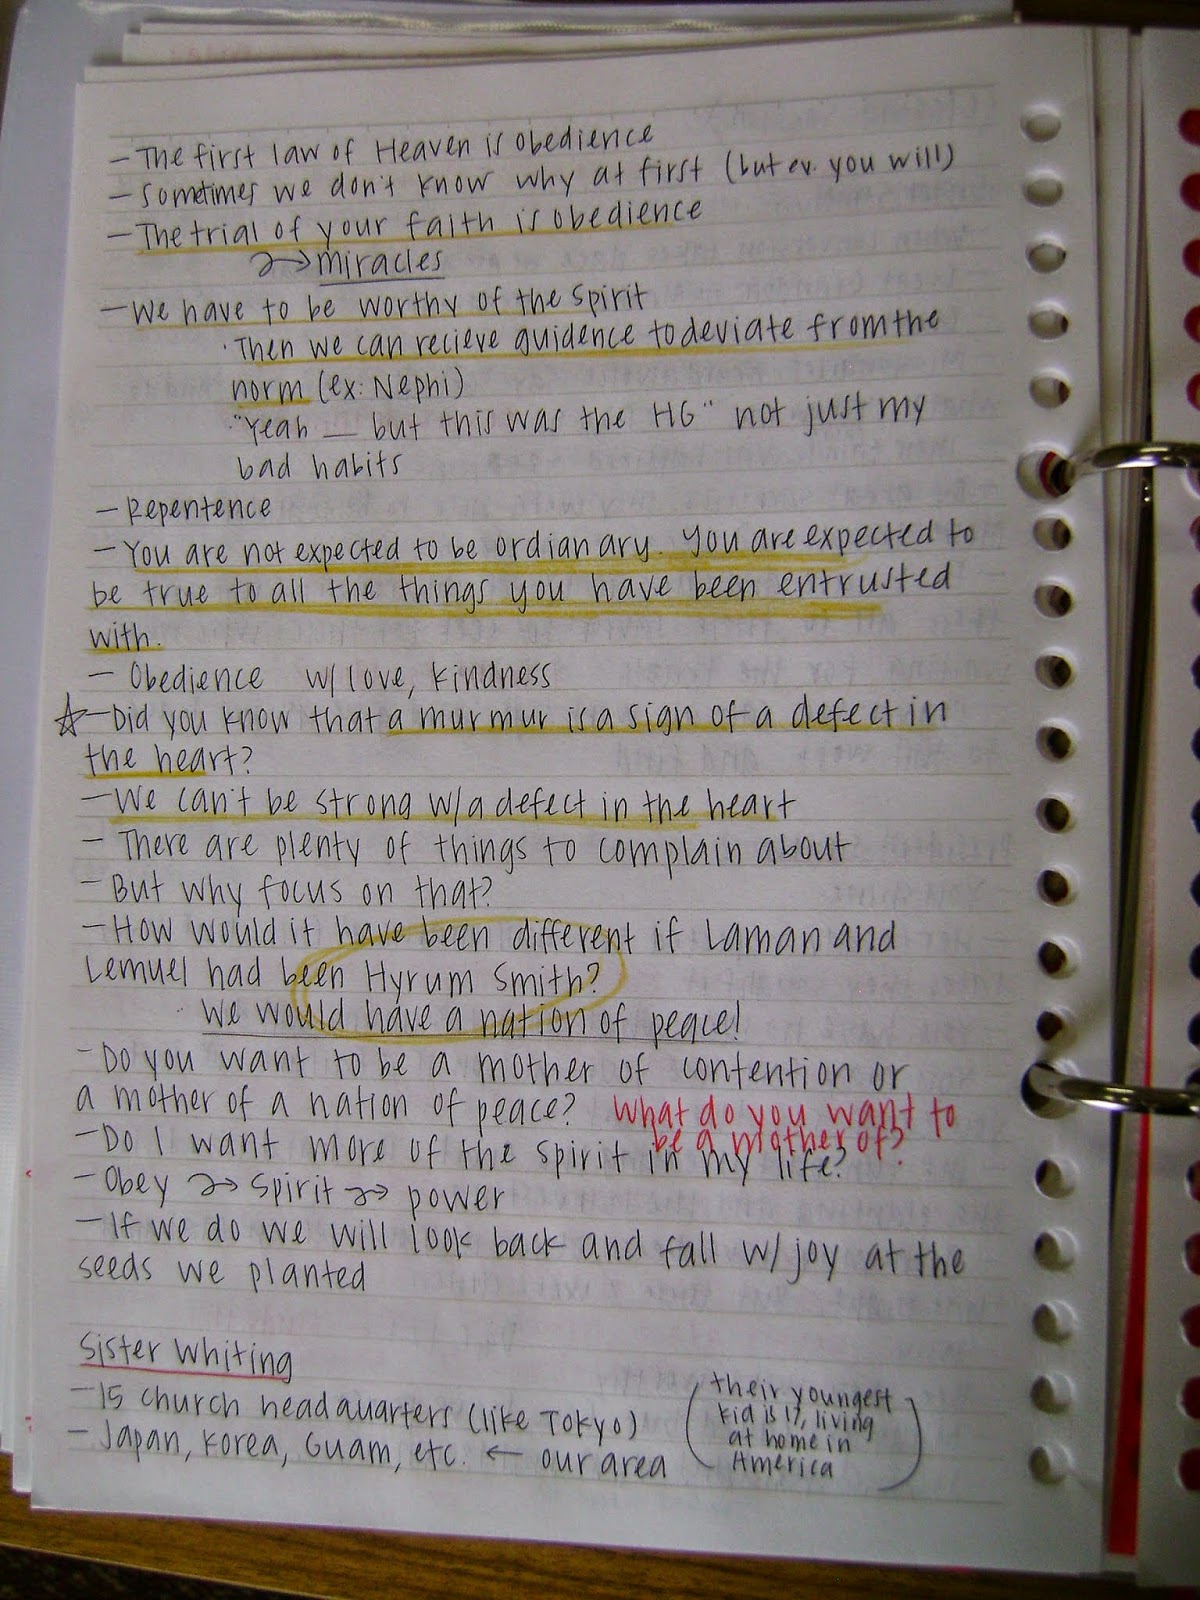 - The first law of Heaven is obedience
- Sometimes we don't know why at first (but ev. you will)
- The trial of your faith is obedience
→ miracles
- We have to be worthy of the spirit
· Then we can recieve guidence to deviate from the
norm (ex: Nephi)
· "Yeah — but this was the HG" not just my
bad habits
- Repentence
- You are not expected to be ordianary. You are expected to
be true to all the things you have been entrusted
with.
- Obedience w/ love, kindness
☆ - Did you know that a murmur is a sign of a defect in
the heart?
- We can't be strong w/ a defect in the heart
- There are plenty of things to complain about
- But why focus on that?
- How would it have been different if Laman and
Lemuel had been Hyrum Smith?
· We would have a nation of peace!
- Do you want to be a mother of contention or
a mother of a nation of peace? What do you want to
be a mother of?
- Do I want more of the spirit in my life?
- Obey → spirit → power
- If we do we will look back and fall w/ joy at the
seeds we planted
Sister Whiting
- 15 church headquarters (like Tokyo)
- Japan, Korea, Guam, etc. ← our area
(their youngest
kid is 17, living
at home in
America)